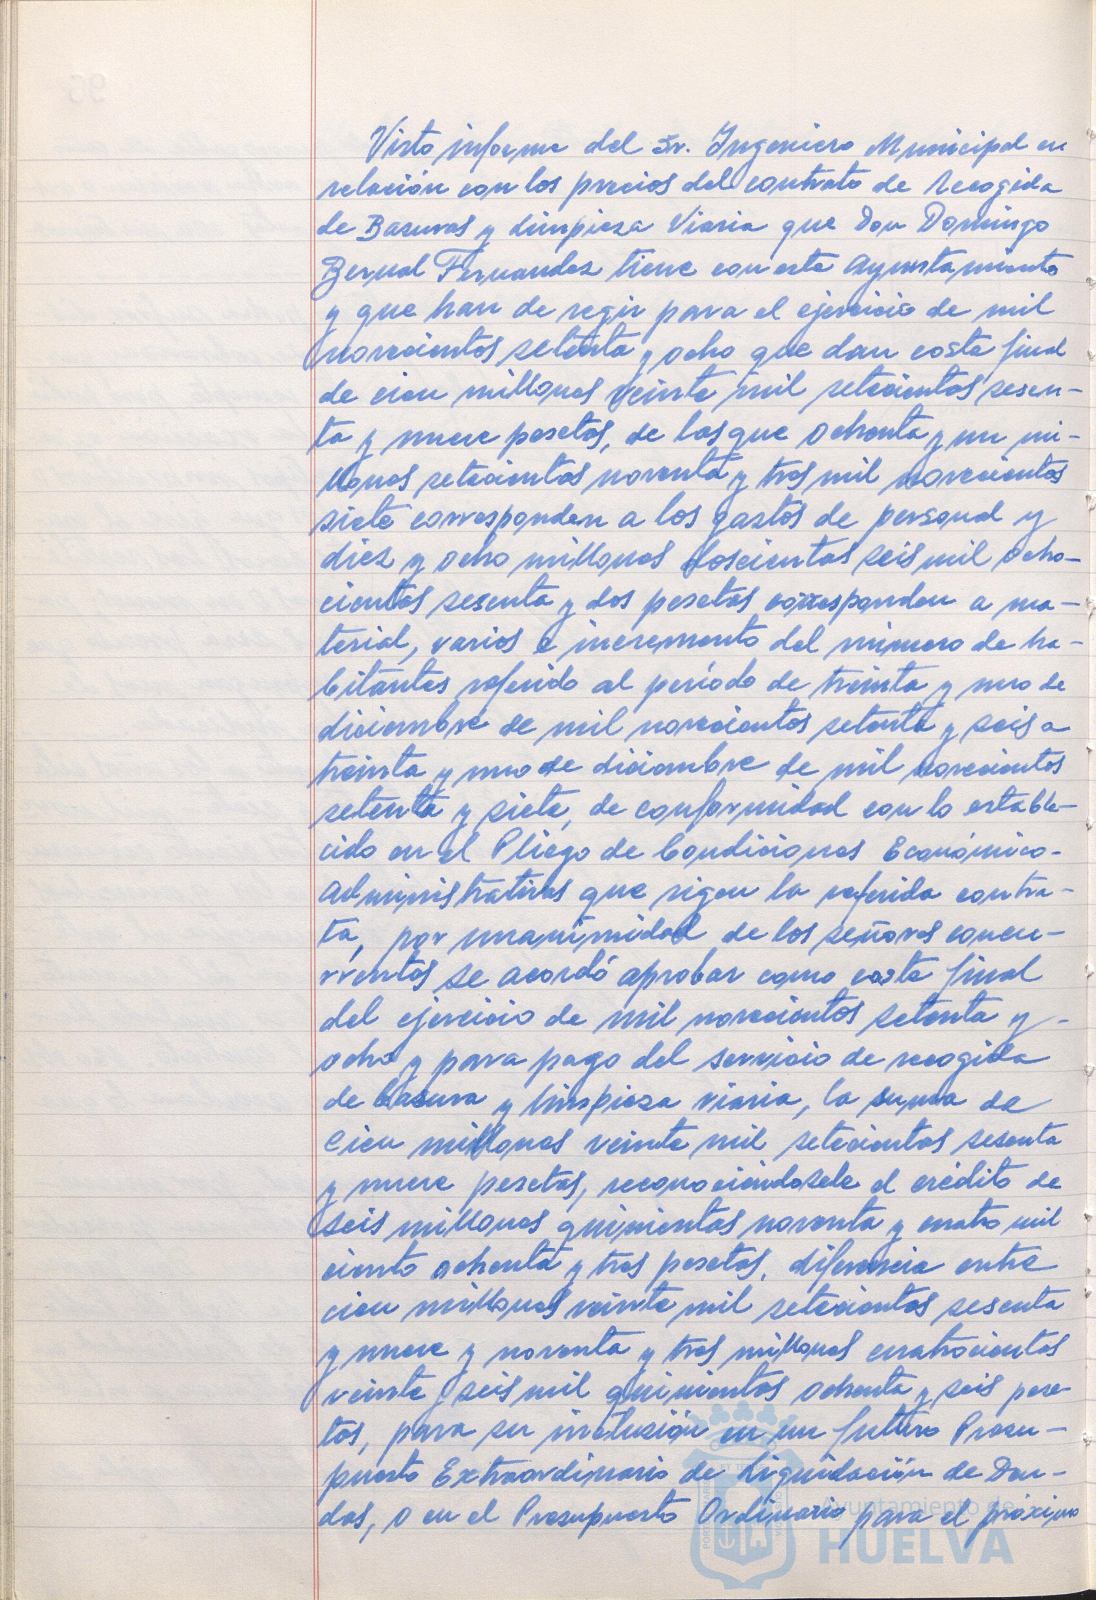 Visto informe del Sr. Ingeniero Municipal en
relación con los precios del contrato de Recogida
de Basuras y Limpieza Viaria que Don Domingo
Bernal Fernandez tiene con este Ayuntamiento
y que han de regir para el ejercicio de mil
novecientos setenta y ocho que dan coste final
de cien millones veinte mil setecientos sesen-
ta y nueve pesetas, de las que ochenta y un mi-
llones setecientos noventa y tres mil novecientos
siete corresponden a los gastos de personal y
diez y ocho millones doscientas seis mil ocho-
cientas sesenta y dos pesetas corresponden a ma-
terial, varios e incremento del número de ha-
bitantes referido al período de treinta y uno de
diciembre de mil novecientos setenta y seis a
treinta y uno de diciembre de mil novecientos
setenta y siete, de conformidad con lo estable-
cido en el Pliego de Condiciones Económico-
Administrativas que rigen la referida contra-
ta, por unanimidad de los señores concu-
rrentes se acordó aprobar como coste final
del ejercicio de mil novecientos setenta y -
ocho y para pago del servicio de recogida
de basura y limpieza viaria, la suma de
Cien millones veinte mil setecientas sesenta
y nueve pesetas, reconociéndosele el crédito de
seis millones quinientas noventa y cuatro mil
ciento ochenta y tres pesetas, diferencia entre
cien millones veinte mil setecientas sesenta
y nueve y noventa y tres millones cuatrocientas
veinte y seis mil quinientas ochenta y seis pese-
tas, para su inclusión en un futuro Presu-
puesto Extraordinario de Liquidación de Deu-
das, o en el Presupuesto Ordinario para el próximo
Ayuntamiento de
HUELVA